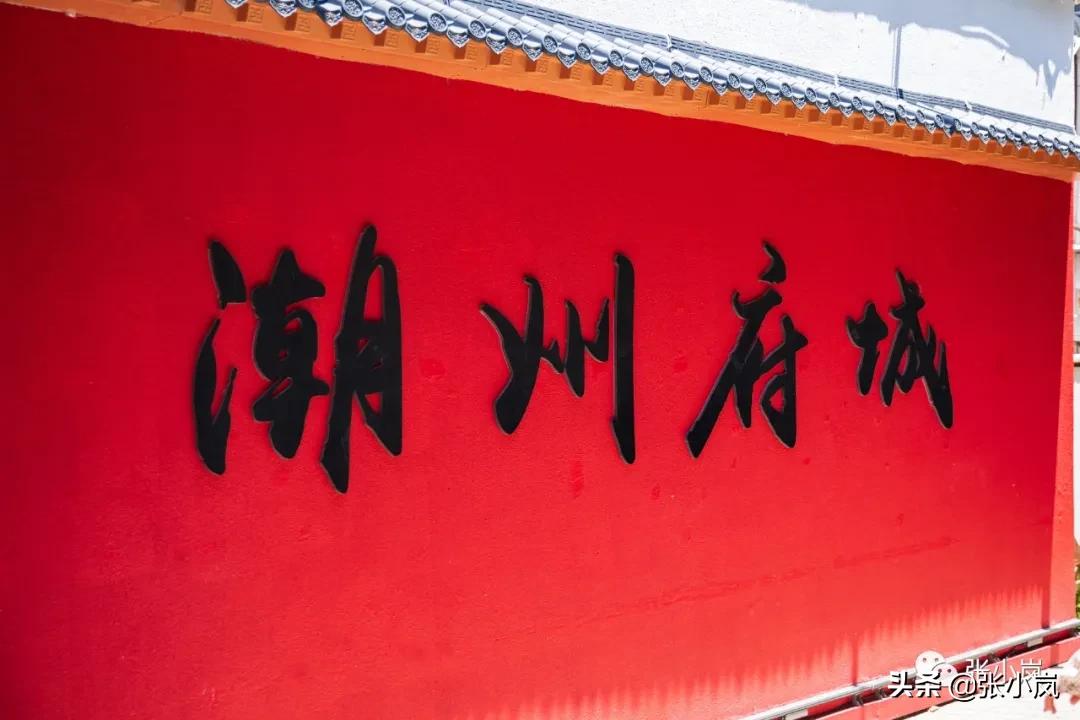 潮州府城
张小岚
头条 @张小岚